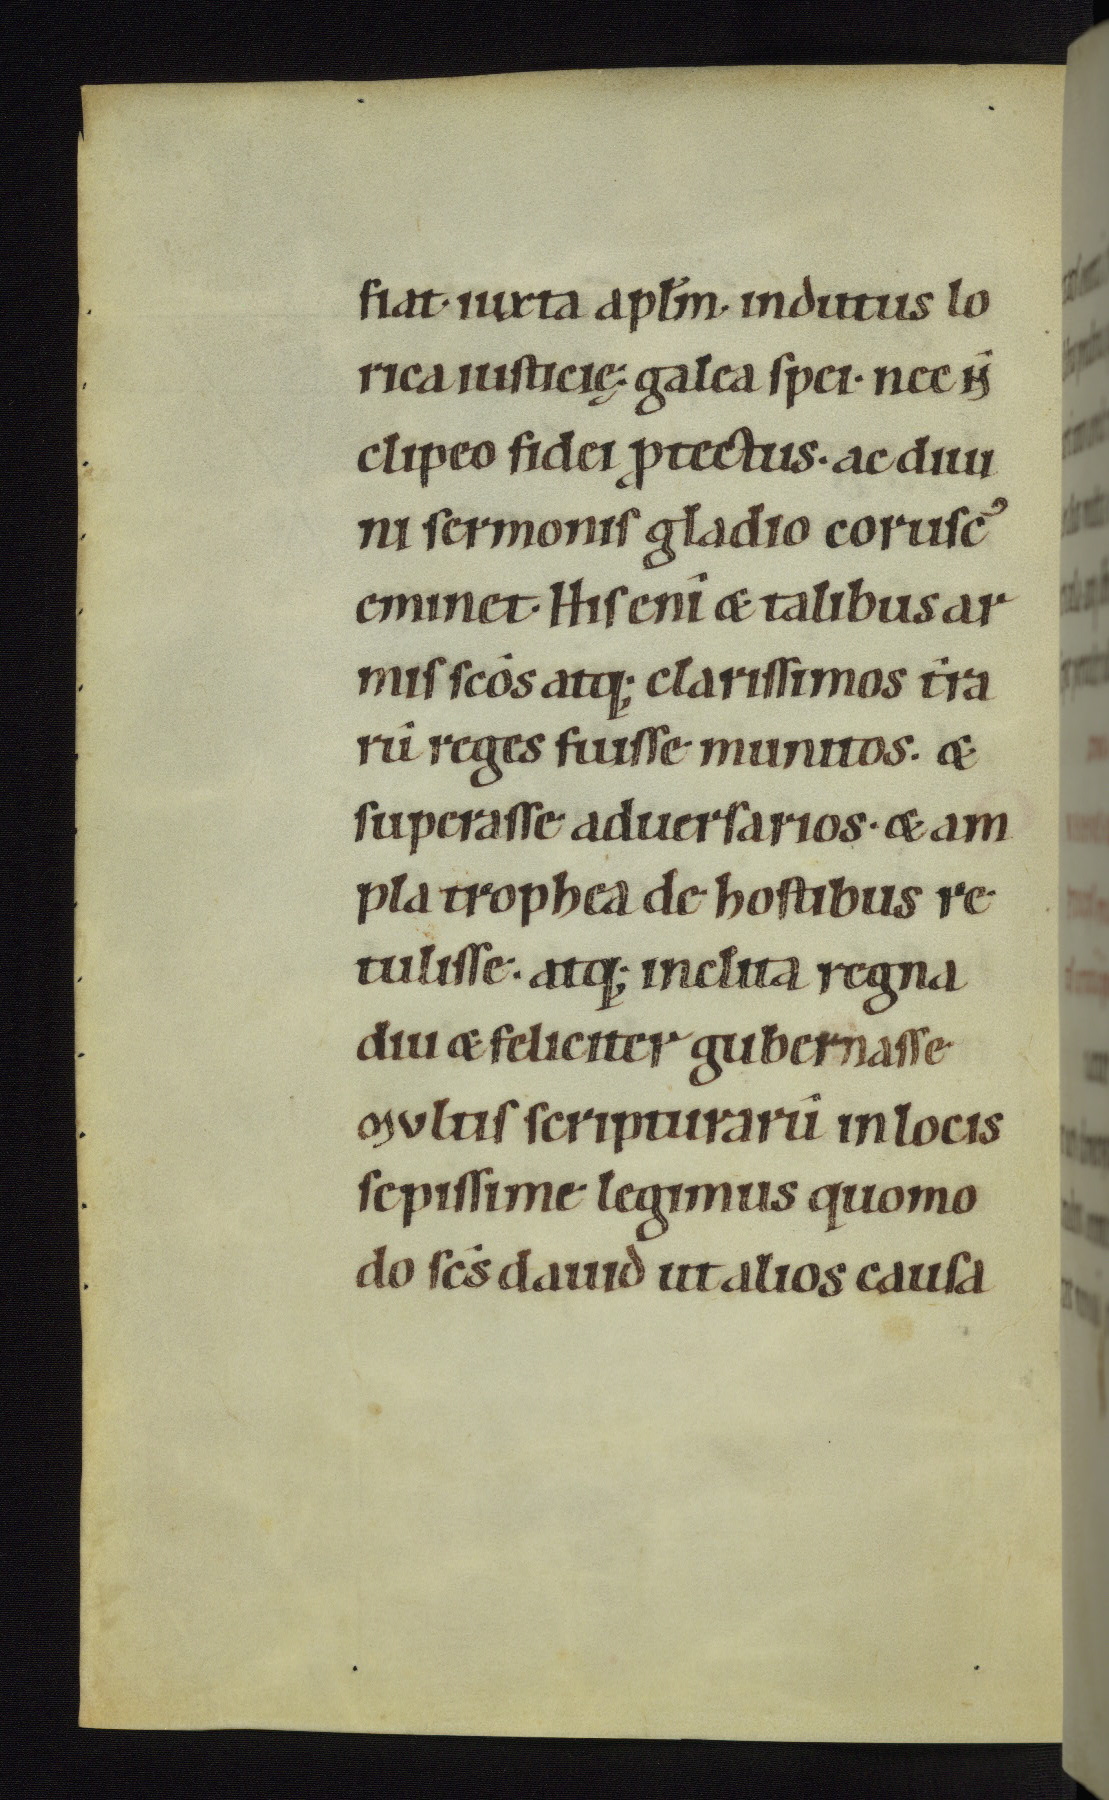 fiat· iuxta apłm̄· indutus lo
rica iusticię; galea spei· nec ñ
clipeo fidei ꝓtectus· ac diui
ni sermonis gladio corusc᾽
eminet· His enī & talibus ar
mis scōs atq; clarissimos t̄ra
rū reges fuisse munitos· &
superasse aduersarios· & am
pla trophea de hostibus re
tulisse· atq; inclita regna
diu & feliciter gubernasse
Multis scripturarū in locis
sepissime legimus quomo
do sc̄s dauid ut alios causa